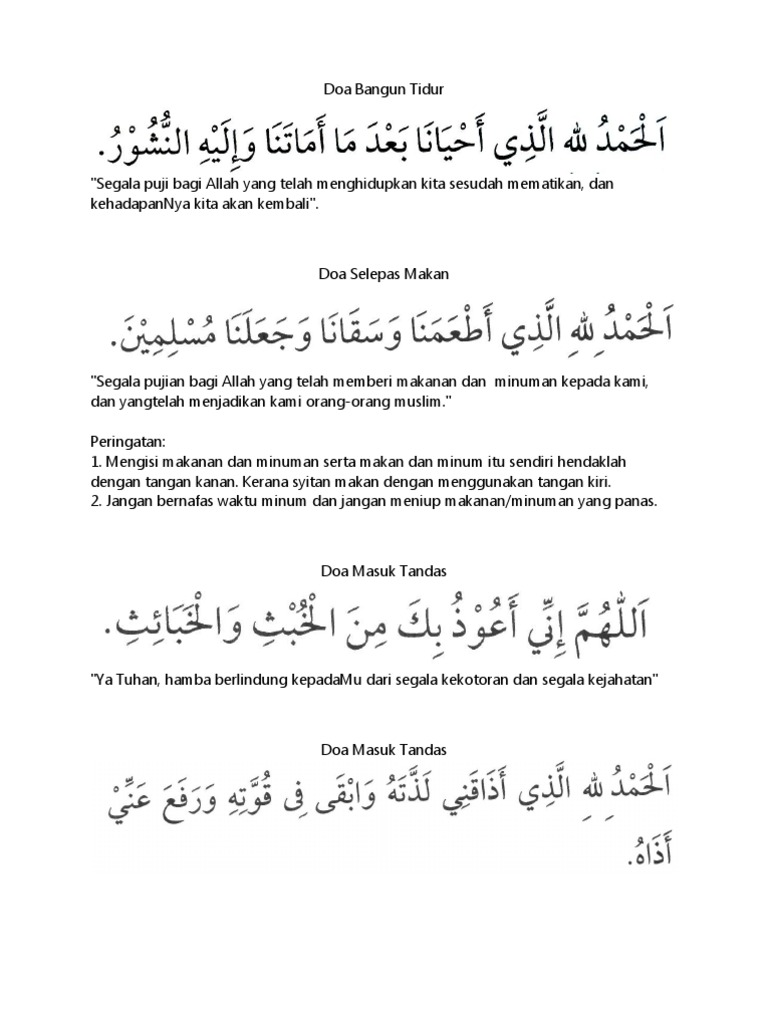 Doa Bangun Tidur
اَلْحَمْدُ لله الَّذِي أَحْيَانَا بَعْدَ مَا أَمَاتَنَا وَإِلَيْهِ النُّشُوْرُ.
"Segala puji bagi Allah yang telah menghidupkan kita sesudah mematikan, dan
kehadapanNya kita akan kembali".
Doa Selepas Makan
اَلْحَمْدُ لِلهِ الَّذِي أَطْعَمَنَا وَسَقَانَا وَجَعَلَنَا مُسْلِمِيْنَ.
"Segala pujian bagi Allah yang telah memberi makanan dan  minuman kepada kami,
dan yangtelah menjadikan kami orang-orang muslim."
Peringatan:
1. Mengisi makanan dan minuman serta makan dan minum itu sendiri hendaklah
dengan tangan kanan. Kerana syitan makan dengan menggunakan tangan kiri.
2. Jangan bernafas waktu minum dan jangan meniup makanan/minuman yang panas.
Doa Masuk Tandas
اَللّٰهُمَّ إِنِّي أَعُوْذُ بِكَ مِنَ الْخُبْثِ وَالْخَبَائِثِ.
"Ya Tuhan, hamba berlindung kepadaMu dari segala kekotoran dan segala kejahatan"
Doa Masuk Tandas
اَلْحَمْدُ لِلهِ الَّذِي أَذَاقَنِي لَذَّتَهُ وَابْقَى فِى قُوَّتِهِ وَرَفَعَ عَنِّيْ
أَذَاهُ.